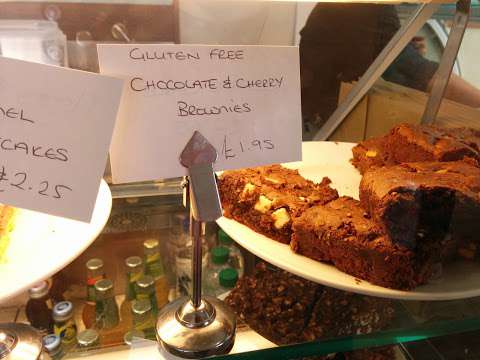 GLUTEN FREE
CHOCOLATE & CHERRY
BROWNIES
£1.95
£2.25